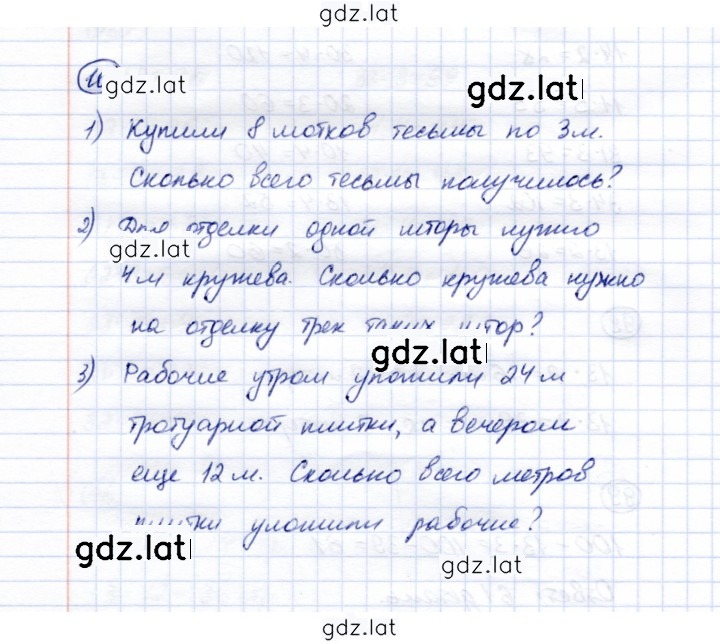 gdz.lat
11 gdz.lat gdz.lat
1) Купили 8 мотков тесьмы по 3 м.
Сколько всего тесьмы получилось?
2) Для отделки одной шторы нужно
gdz.lat
4 м кружева. Сколько кружева нужно
на отделку трех таких штор?
gdz.lat
3) Рабочие утром уложили 24 м
тротуарной плитки, а вечером
еще 12 м. Сколько всего метров
плитки уложили рабочие?
gdz.lat
gdz.lat
gdz.lat